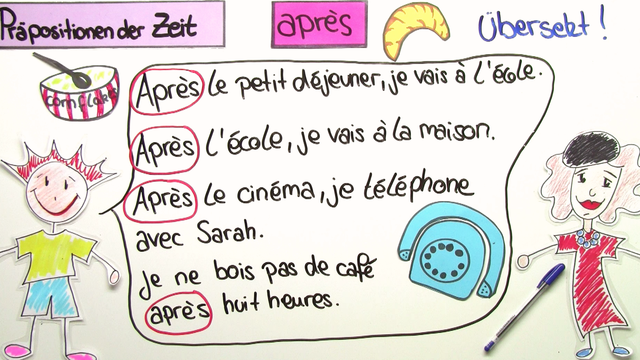 Präpositionen der Zeit
après
Übersetzt!
cornflakes
Après le petit déjeuner, je vais à l'école.
Après l'école, je vais à la maison.
Après le cinéma, je téléphone
avec Sarah.
Je ne bois pas de café
après huit heures.